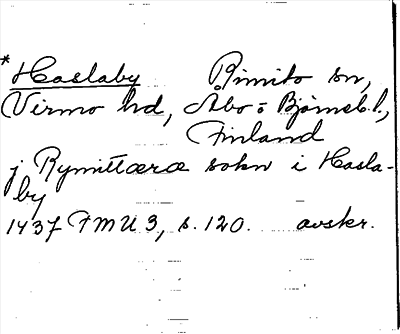 * Haslaby Rimito sn,
Virmo hd, Åbo o Björneb.l.,
Finland
j Rymittæræ sokn i Hasla-
by
1437 FMU 3, s. 120. avskr.